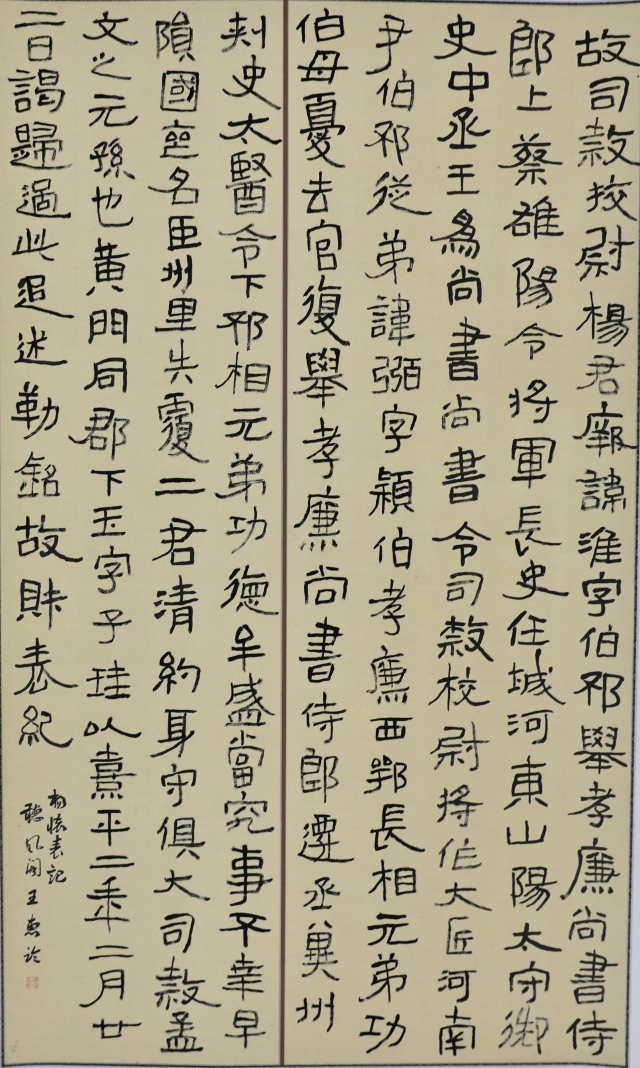 故司敹挍尉楊君厥諱淮字伯邳舉孝廉尚書侍
郎上蔡雒陽令將軍長史任城河東山陽太守御
史中丞王為尚書尚書令司敹校尉將作大匠河南
尹伯邳從弟諱弼字穎伯孝廉西鄂長相元弟功
伯母憂去官復舉孝廉尚書侍郎遷丞冀州
刺史太醫令下邳相元弟功德牟盛當究事不幸早
隕國喪名臣州里失覆二君清約身守俱大司敹孟
文之元孫也黄門同郡下玉字子珪以熹平二年二月廿
二日謁歸過此追述勒銘故財表紀
楊懷表記
聽風閣王